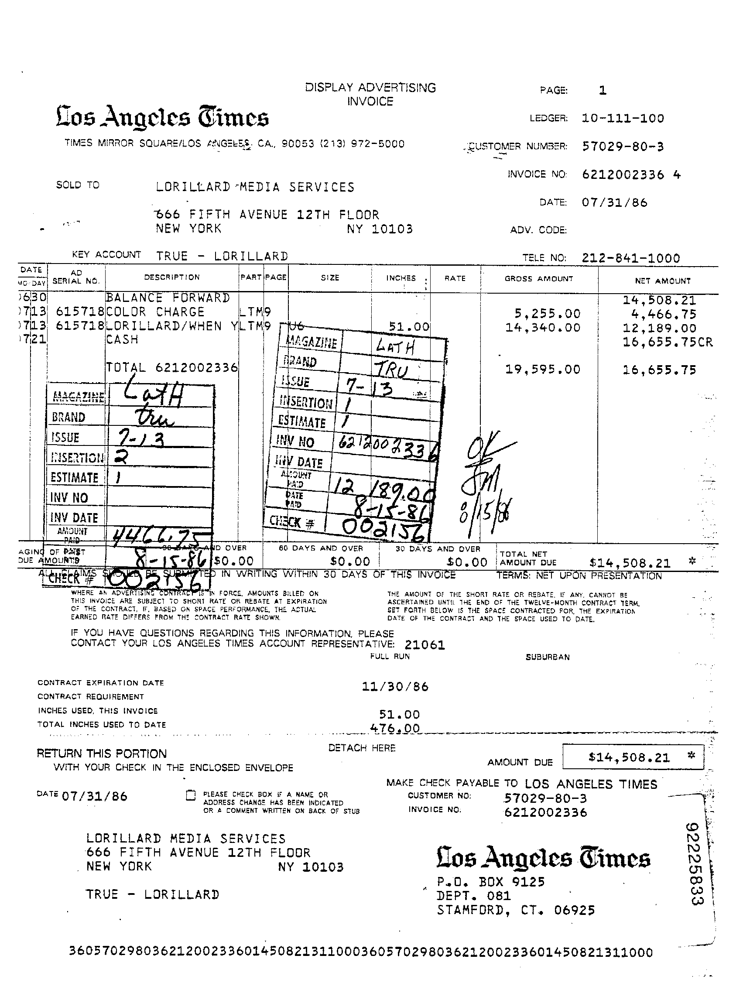 DISPLAY ADVERTISING
INVOICE
PAGE: 1
Los Angeles Times
LEDGER: 10-111-100
TIMES MIRROR SQUARE/LOS ANGELES, CA., 90053 (213) 972-5000
CUSTOMER NUMBER: 57029-80-3
INVOICE NO: 6212002336 4
SOLD TO LORILLARD MEDIA SERVICES
DATE: 07/31/86
666 FIFTH AVENUE 12TH FLOOR
NEW YORK NY 10103
ADV. CODE:
KEY ACCOUNT TRUE - LORILLARD
TELE NO: 212-841-1000
DATE MO DAY AD SERIAL NO. DESCRIPTION PART PAGE SIZE INCHES RATE GROSS AMOUNT NET AMOUNT
0630 BALANCE FORWARD 14,508.21
0713 615718 COLOR CHARGE LTM9 5,255.00 4,466.75
0713 615718 LORILLARD/WHEN Y LTM9 51.00 14,340.00 12,189.00
0721 CASH 16,655.75CR
TOTAL 6212002336 19,595.00 16,655.75
MAGAZINE LATH
BRAND TRU
ISSUE 7-13
INSERTION 1
ESTIMATE 1
INV NO 6212002336
INV DATE
AMOUNT PAID 12 189.00
DATE PAID 8-15-86
CHECK # 002156
MAGAZINE LatH
BRAND tru
ISSUE 7-13
INSERTION 2
ESTIMATE 1
INV NO
INV DATE
AMOUNT PAID 4466.75
8-15-86
CHECK # 002156
OK
8/15/86
AGING OF PAST DUE AMOUNTS 90 DAYS AND OVER $0.00 60 DAYS AND OVER $0.00 30 DAYS AND OVER $0.00 TOTAL NET AMOUNT DUE $14,508.21 *
ALL CLAIMS SHOULD BE SUBMITTED IN WRITING WITHIN 30 DAYS OF THIS INVOICE TERMS: NET UPON PRESENTATION
WHERE AN ADVERTISING CONTRACT IS IN FORCE, AMOUNTS BILLED ON
THIS INVOICE ARE SUBJECT TO SHORT RATE OR REBATE AT EXPIRATION
OF THE CONTRACT, IF, BASED ON SPACE PERFORMANCE, THE ACTUAL
EARNED RATE DIFFERS FROM THE CONTRACT RATE SHOWN.
THE AMOUNT OF THE SHORT RATE OR REBATE, IF ANY, CANNOT BE
ASCERTAINED UNTIL THE END OF THE TWELVE-MONTH CONTRACT TERM.
SET FORTH BELOW IS THE SPACE CONTRACTED FOR, THE EXPIRATION
DATE OF THE CONTRACT AND THE SPACE USED TO DATE.
IF YOU HAVE QUESTIONS REGARDING THIS INFORMATION, PLEASE
CONTACT YOUR LOS ANGELES TIMES ACCOUNT REPRESENTATIVE: 21061
FULL RUN SUBURBAN
CONTRACT EXPIRATION DATE 11/30/86
CONTRACT REQUIREMENT
INCHES USED, THIS INVOICE 51.00
TOTAL INCHES USED TO DATE 476.00
DETACH HERE
RETURN THIS PORTION
WITH YOUR CHECK IN THE ENCLOSED ENVELOPE
AMOUNT DUE $14,508.21 *
MAKE CHECK PAYABLE TO LOS ANGELES TIMES
DATE 07/31/86
PLEASE CHECK BOX IF A NAME OR
ADDRESS CHANGE HAS BEEN INDICATED
OR A COMMENT WRITTEN ON BACK OF STUB
CUSTOMER NO: 57029-80-3
INVOICE NO. 6212002336
LORILLARD MEDIA SERVICES
666 FIFTH AVENUE 12TH FLOOR
NEW YORK NY 10103
TRUE - LORILLARD
Los Angeles Times
P.O. BOX 9125
DEPT. 081
STAMFORD, CT. 06925
92225833
360570298036212002336014508213110003605702980362120023360145082131​1000